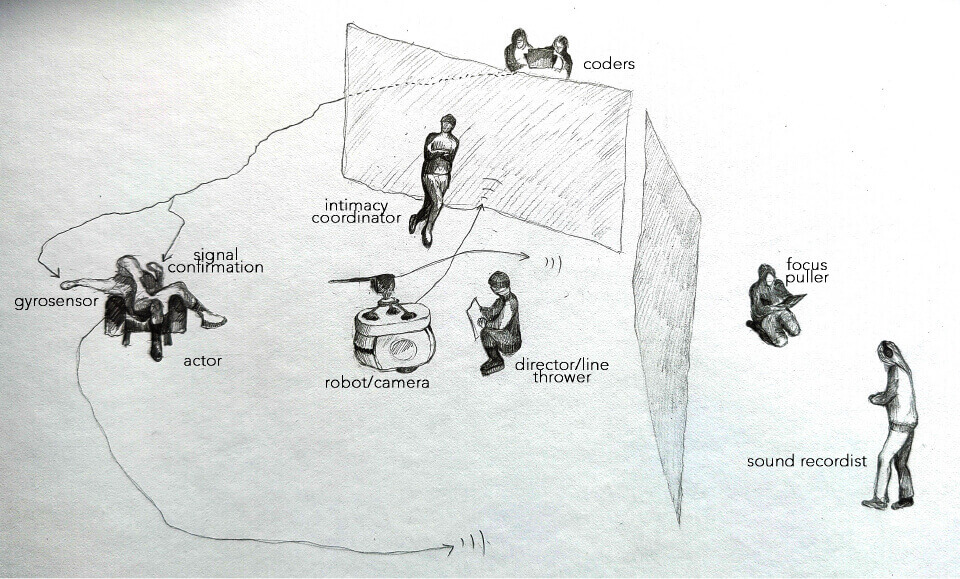 coders
intimacy
coordinator
signal
confirmation
gyrosensor
focus
puller
actor
robot/camera
director/line
thrower
sound recordist